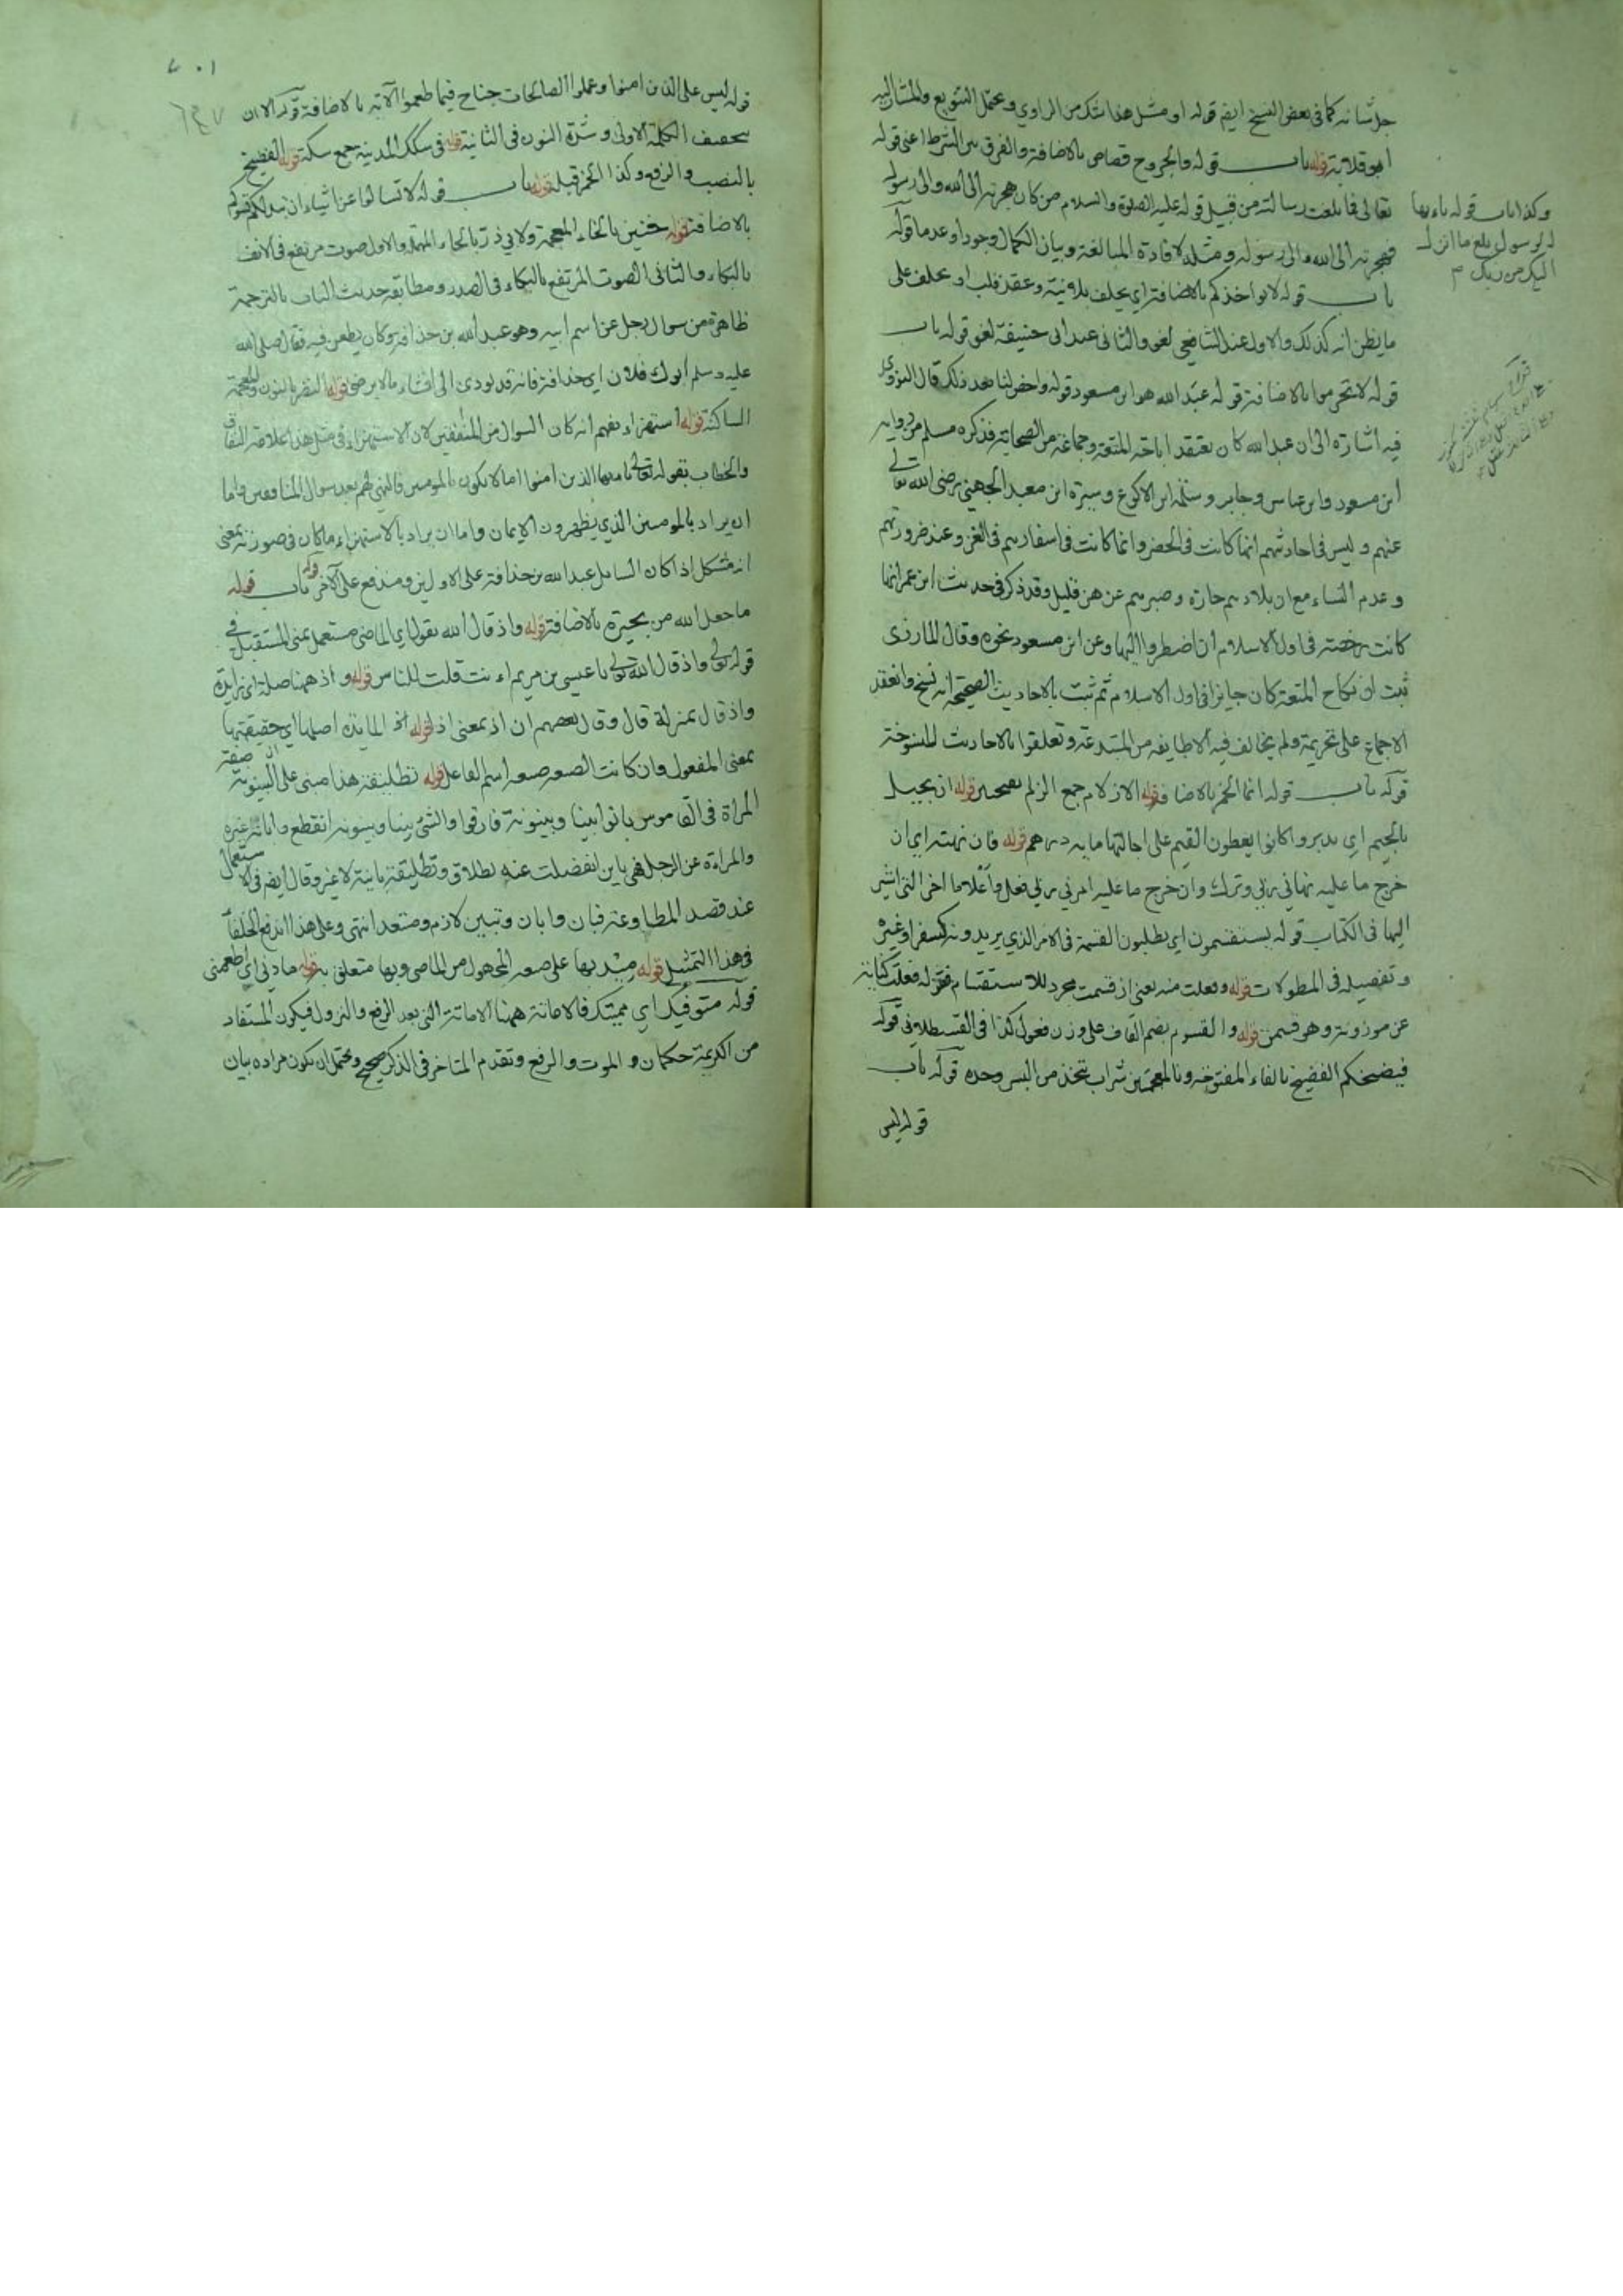 جل شانه كما في بعض النسخ ايضم قوله او مثل هذا شك من الراوي ويحتمل التنويع والمشار اليه
ابو قلابة قوله باب قوله والجروح قصاص بالاضافة والفرق بين الشرط اعني قوله
تعالى فما بلغت رسالته من قبيل قوله عليه الصلوة والسلام من كان هجرته الى الله والى رسوله
فهجرته الى الله والى رسوله ومثله لافادة المبالغة وبيان الكمال وجودا وعدما قوله
باب قوله لا يواخذكم بالاضافة اي يحلف بلا نية وعقد قلب او يحلف على
ما يظن انه كذلك والاول عند الشافعي لغو والثاني عند ابي حنيفة لغو قوله باب
قوله لا تحرموا بالاضافة قوله عبد الله هو ابن مسعود قوله واخص لنا بعد ذلك قال النووي
فيه اشارة الى ان عبد الله كان يعتقد اباحة المتعة وجماعة من الصحابة فذكره مسلم من رواية
ابن مسعود وابن عباس وجابر وسلمة ابن الاكوع وسبرة ابن معبد الجهني رضي الله تعالى
عنهم وليس في احاديثهم انها كانت في الحضر وانما كانت في اسفارهم في الغزو عند ضرورتهم
وعدم النساء مع ان بلادهم حارة وصبرهم عن هن قليل وقد ذكر في حديث ابن عمر انها
كانت رخصة في اول الاسلام ان اضطر وا اليها وعن ابن مسعود نحوه وقال المازري
ثبت ان نكاح المتعة كان جايزا في اول الاسلام ثم ثبت بالاحاديث الصحيحة انه نسخ وانعقد
الاجماع على تحريمة ولم يخالف فيه الا طايفه من المبتدعة وتعلقوا بالاحاديث المنسوخة
قوله باب قوله انما الخمر بالاضافة قوله الازلام جمع الزلم بفتحتين قوله ان يجيل
بالجيم اي يدير وا كانوا يعطون القيم على اجالتها ماية درهم قوله فان نهته اي ان
خرج ما عليه نهاني ربي وترك وان خرج ما عليه امرني ربي فعل واعلاما اخرا التي اشير
اليها في الكتاب قوله يستقسمون اي يطلبون القسمة في الامر الذي يريدونه كسفر او غيره
وتفصيله في المطولات قوله وفعلت منه يعني ان قسمت مجرد للاستقسام فقوله فعلت كناية
عن موزونة وهو قسمت قوله والقسوم بضم القاف على وزن فعول كذا في القسطلاني قوله
فيضخكم الفضيخ بالفاء المفتوحة وبالمعجمتين شراب يتخذ من البسر وحده قوله باب
قوله ليس
وكذا باب قوله يا ايها
الرسول بلغ ما انزل
اليك من ربك م
٧٠١
قوله ليس على الذين امنوا وعملوا الصالحات جناح فيما طعموا الاية بالاضافة قوله الا ان
بتخفيف الكلمة الاولى وشدة النون في الثانية قوله في سكك المدينة جمع سكة قوله الفضيخ
بالنصب والرفع وكذا الخمر قبله قوله باب قوله لا تسالوا عن اشياء ان تبد لكم تسؤكم
بالاضافة قوله خنين بالخاء المعجمة ولابي ذر بالحاء المهملة والاول صوت مرتفع في الانف
بالبكاء والثاني الصوت المرتفع بالبكاء في الصدر ومطابقة حديث الباب بالترجمة
ظاهرة من سوال رجل عن اسم ابيه وهو عبد الله بن حذافة وكان يطعن فيه فقال صلى الله
عليه وسلم ابوك فلان اي حذافة فانه قد يودى الى افشاء ما لا يرضى قوله النضر بالنون والمعجمة
الساكنة قوله استهزاء يفهم انه كان السوال من المنافقين لان الاستهزاء في مثل هذا علامة النفاق
والخطاب بقوله تعالى يا ايها الذين امنوا اما لا يكون للمومنين فالنهي لهم بعد سوال المنافقين واما
ان يراد بالمومنين الذي يظهرون الايمان واما ان يراد بالاستهزاء ما كان في صورته بمعنى
انه مشكل اذا كان السايل عبد الله بن حذافة على الاولين ومندفع على الاخر قوله باب قوله
ما جعل الله من بحيرة بالاضافة قوله واذ قال الله يقول اي الماضي مستعمل بمعنى المستقبل في
قوله تعالى واذ قال الله تعالى يا عيسى بن مريم اءنت قلت للناس قوله واذ ههنا صلة اي زايدة
واذ قال بمنزلة قال وقال بعضهم ان اذ بمعنى اذا قوله المايدة اصلها اي حقيقتها
بمعنى المفعول وان كانت الصيغة صيغة اسم الفاعل قوله تطليقة هذا مبنى على ان البينونة صفة
المراة في القاموس بانوا بينا وبينونة فارقوا والشئ بينا وبينونة انقطع وابانه غيره
والمراءة عن الرجل فهي باين انفصلت عنه بطلاق وتطليقة باينة لا غير وقال ايضم في الاستعمال
عند قصد المطاوعة فبان وابان وتبين لازم ومتعد انتهى وعلى هذا اندفع الخلفا
في هذا التمثيل قوله ميد بها على صيغة المجهول من الماضي وبها متعلق به قوله مادني اي اطعمني
قوله متوفيك اي مميتك فالاماتة ههنا الاماتة التي بعد الرفع والنزول فيكون المستفاد
من الكريمة حكمان والموت والرفع وتقدم المتاخر في الذكر صحيح ويحتمل ان يكون مراده بيان